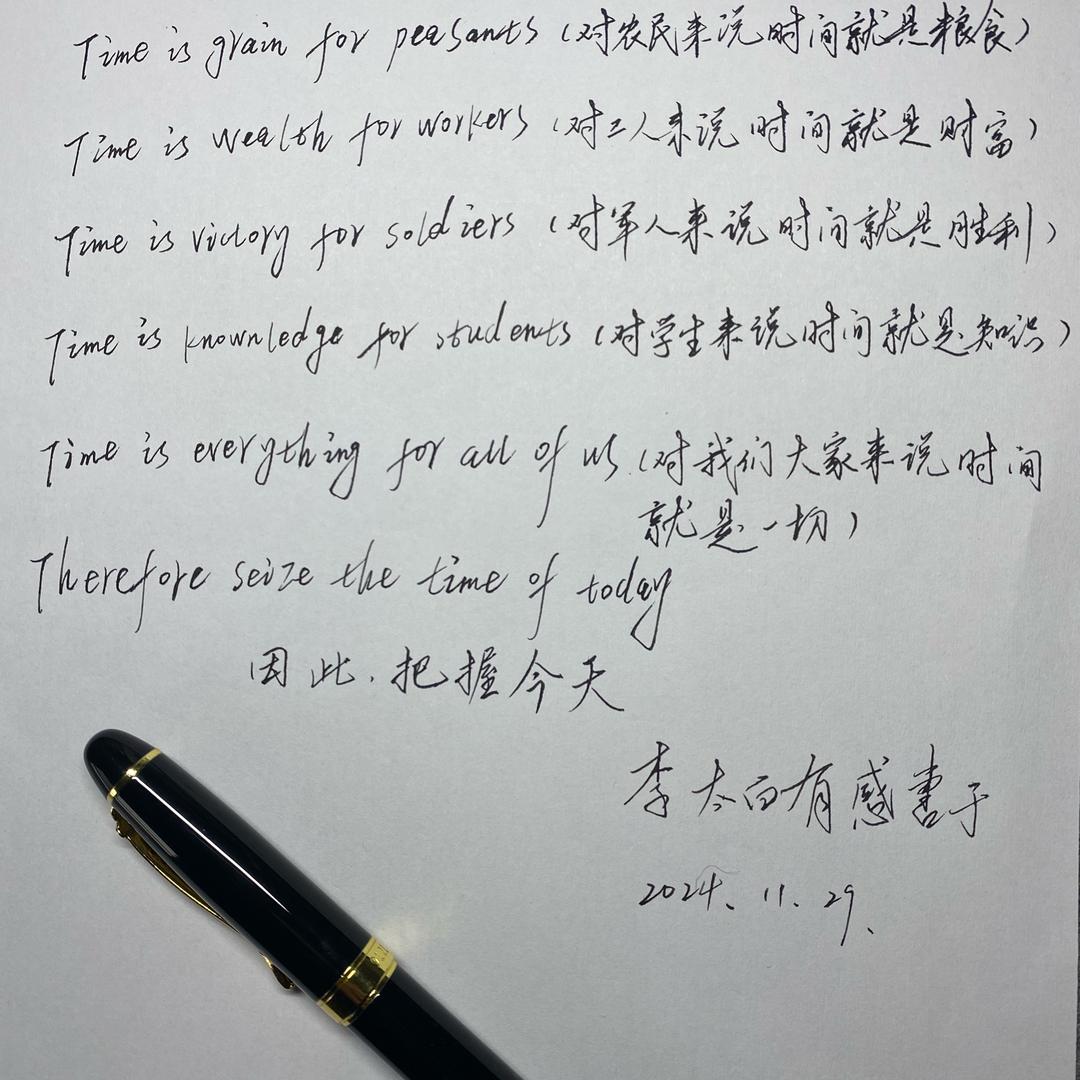 Time is grain for peasants (对农民来说时间就是粮食)
Time is wealth for workers (对工人来说时间就是财富)
Time is victory for soldiers (对军人来说时间就是胜利)
Time is knownledge for students (对学生来说时间就是知识)
Time is everything for all of us.(对我们大家来说时间
就是一切)
Therefore seize the time of today
因此.把握今天
李太白有感书于
2024.11.29.